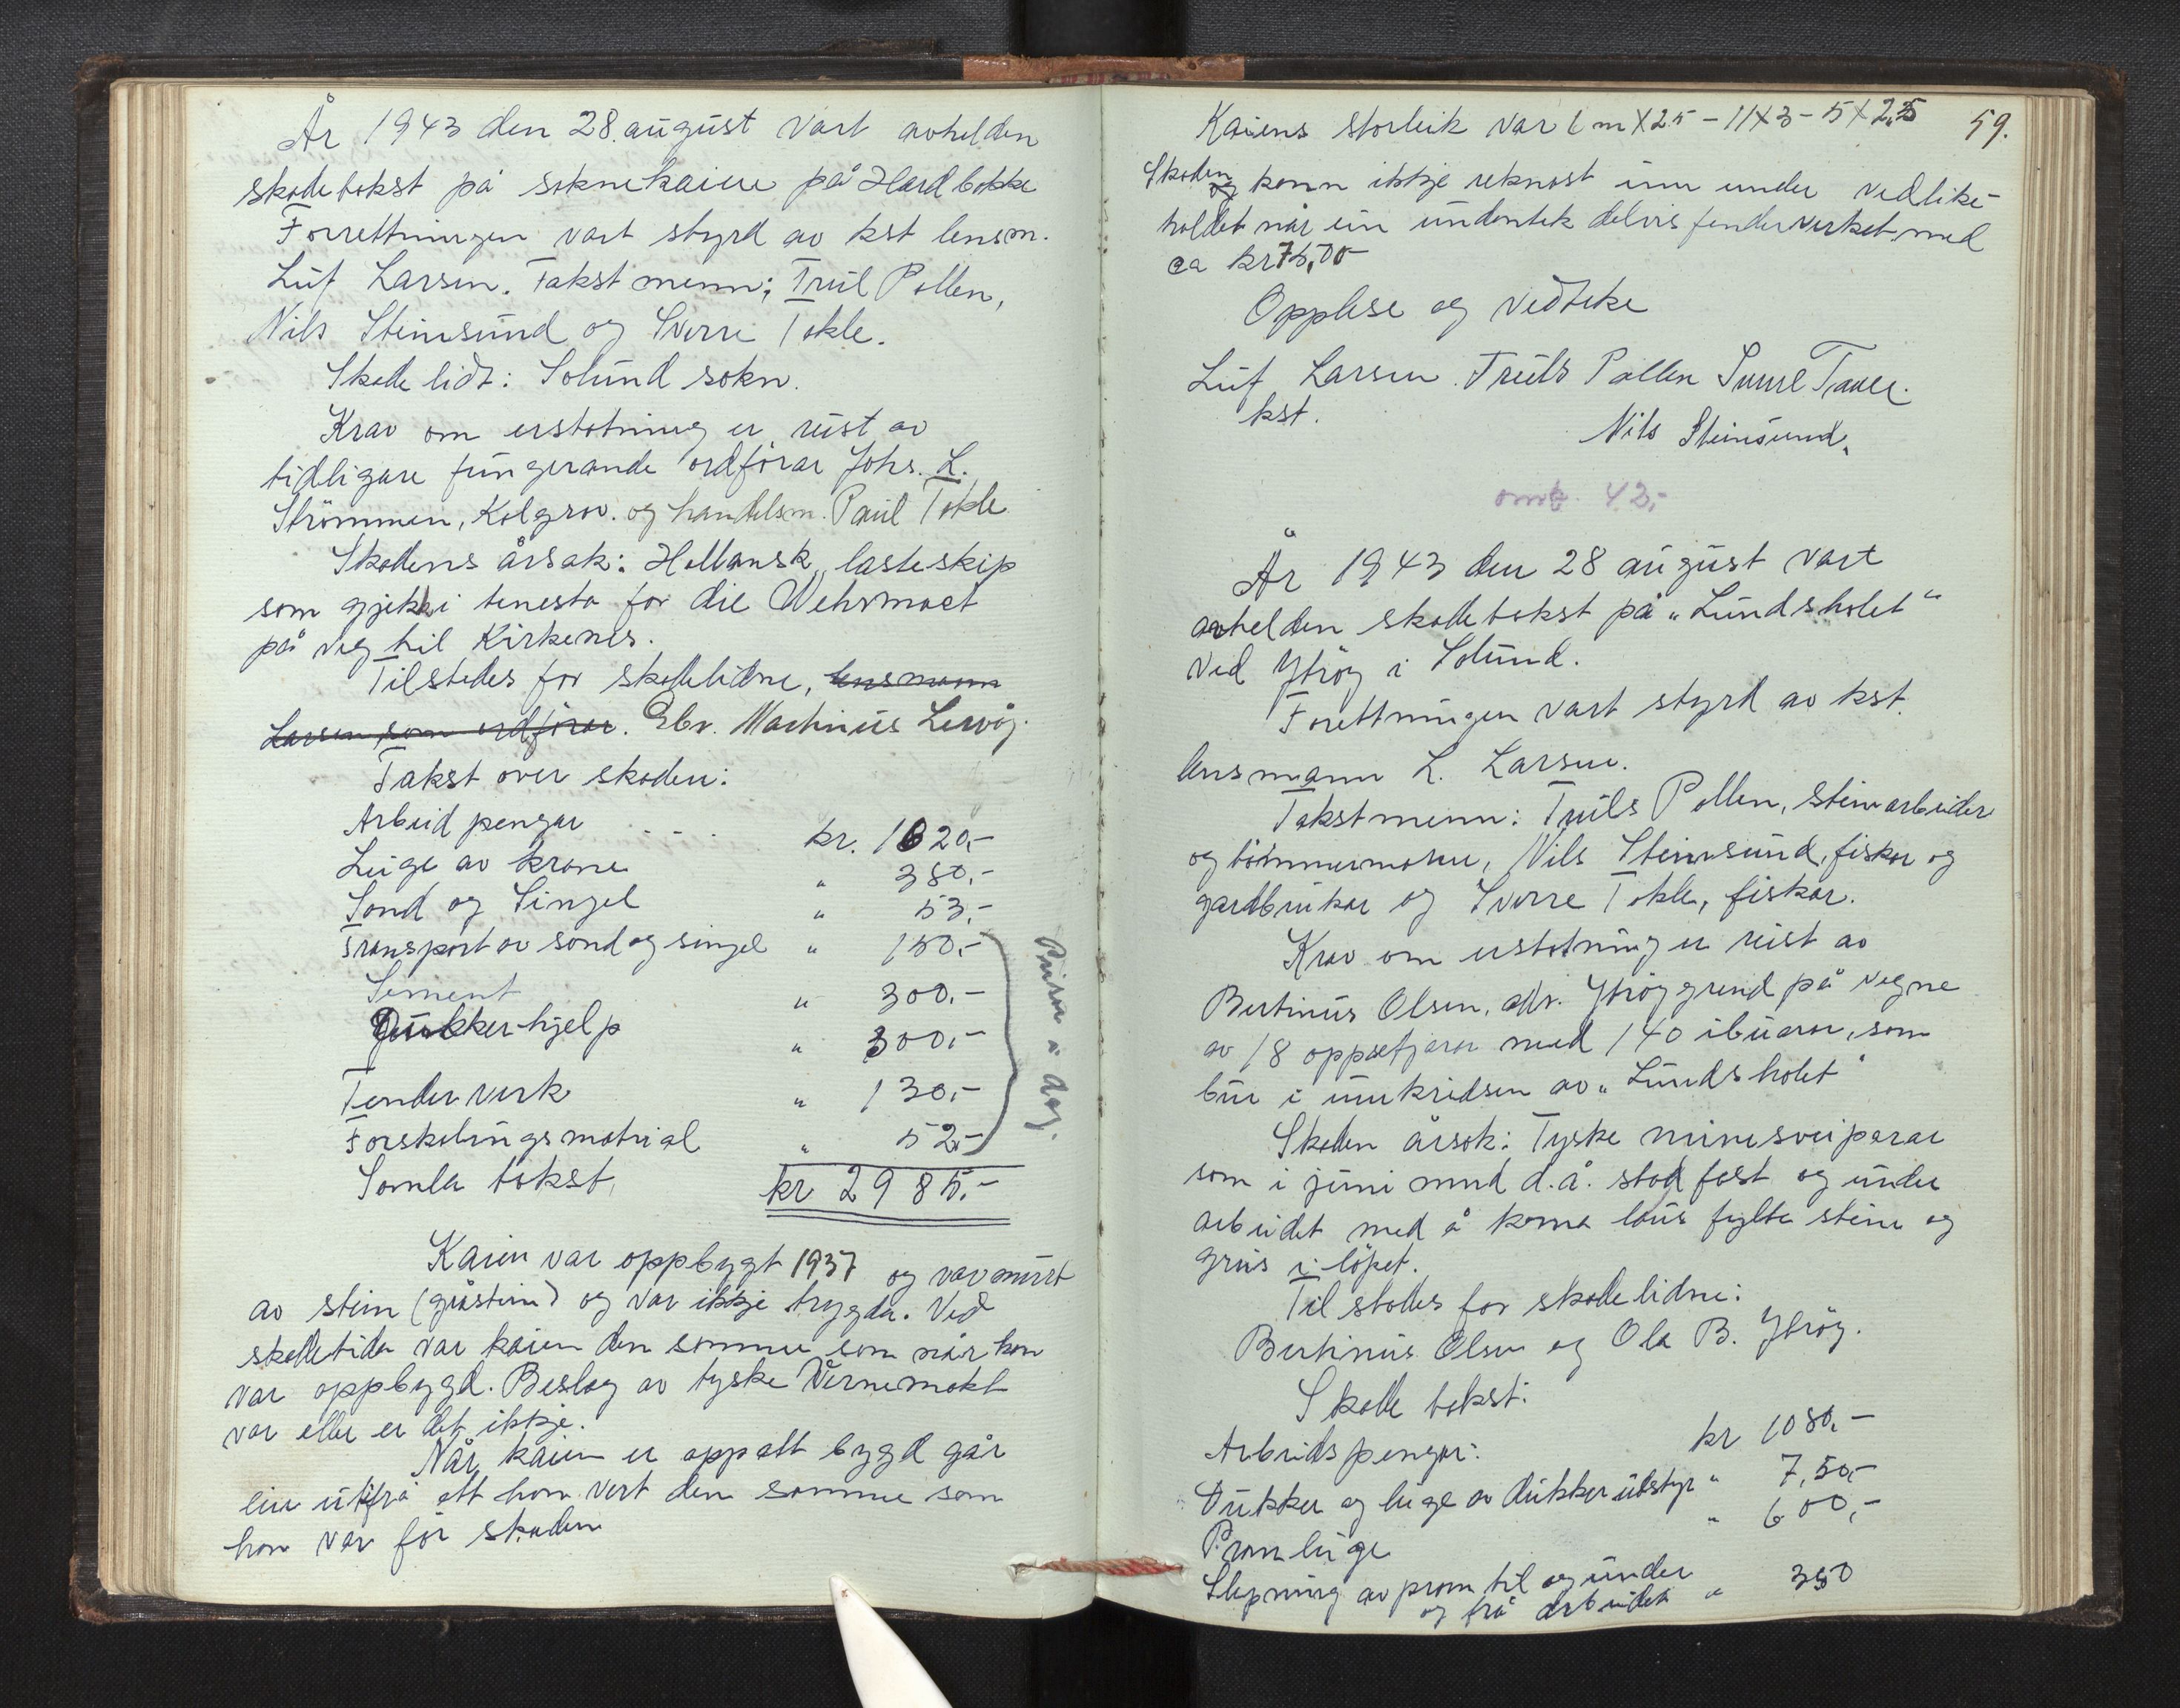 År 1943 den 28. august vart avhelden
skadetakst på soknekaien på Hardbakke
Forrettningen vart styrd av kst lensm.
Leif Larsen. Takst menn; Trul Pollen,
Nils Steinsund og Sverre Takle.
Skadelidt: Solund sokn.
Krav om erstatning er reist av
tidligare fungerande ordförar Johs. L.
Strömmen, Kolgrov. og handelsm. Paul Takle
Skadens årsak: Hollansk lasteskip
som gjekk i tenesta for die Wehrmact
på veg til Kirkenes.
Tilstedes for skadelidne, lensmann
Larsen som ordförar. Gbr. Martinus Lervåg.
Takst over skaden:
Arbeid pengar . . . . kr. 1620,-
Leige av krane " 380,-
Sand og Singel " 53,-
Transport av sand og singel " 150,-
Sement " 300,-
Dukkerhjelp " 300,-
Fenderverk " 130,-
Forskalingsmatrial " 52,-
Prisar i dag.
Samla takst, kr 2985,-
Kaien var oppbygt 1937 og var murt
av stein (gråstein) og var ikkje trygda. Ved
skadetida var kaien den samme som når han
var oppbygd. Beslag av tyske Vernemakt
var eller er det ikkje.
Når kaien er oppatt bygd går
ein utifrå att han vert den samme som
han var för skaden
59.
Kaiens storleik var 6 m X 2.5 - 11X3 - 5 X 2,25
Skaden
og kann ikkje reknast inn under vedlike-
holdet når ein undentek delvis fenderverket med
ca kr 75,00
Opplese og vedteke
Leif Larsen Truls Pollen Sverre Takle.
kst.
Nils Steinsund.
omk. 42,-
År 1943 den 28 august vart
avhelden skadetakst på "Lundsholet"
ved Ytröy i Solund.
Forettningen vart styrd av kst.
lensmann L. Larsen.
Takstmenn: Truls Pollen, steinarbeider
og tömmermann, Nils Steinsund, fiskar og
gardbrukar og Sverre Takle, fiskar.
Krav om erstatning er reist av
Bertinus Olsen, adr. Ytröygrend på vegne
av 18 oppsetjarar med 140 ibuarar, som
bur i innkridsen av "Lundsholet"
Skaden årsak: Tyske minesveiparar
som i juni mnd d.å. stod fast og under
arbeidet med å koma laus fylte stein og
grus i löpet.
Til stades for skadelidne:
Bertinus Olsen og Ola B. Ytröy.
Skade takst:
Arbeidspengar: kr 1080,-
Dukker og leige av dukkerutstyr " 7,50,-
Pram leige " 600,-
Slepning av pram til og under
og frå arbeidet " 350